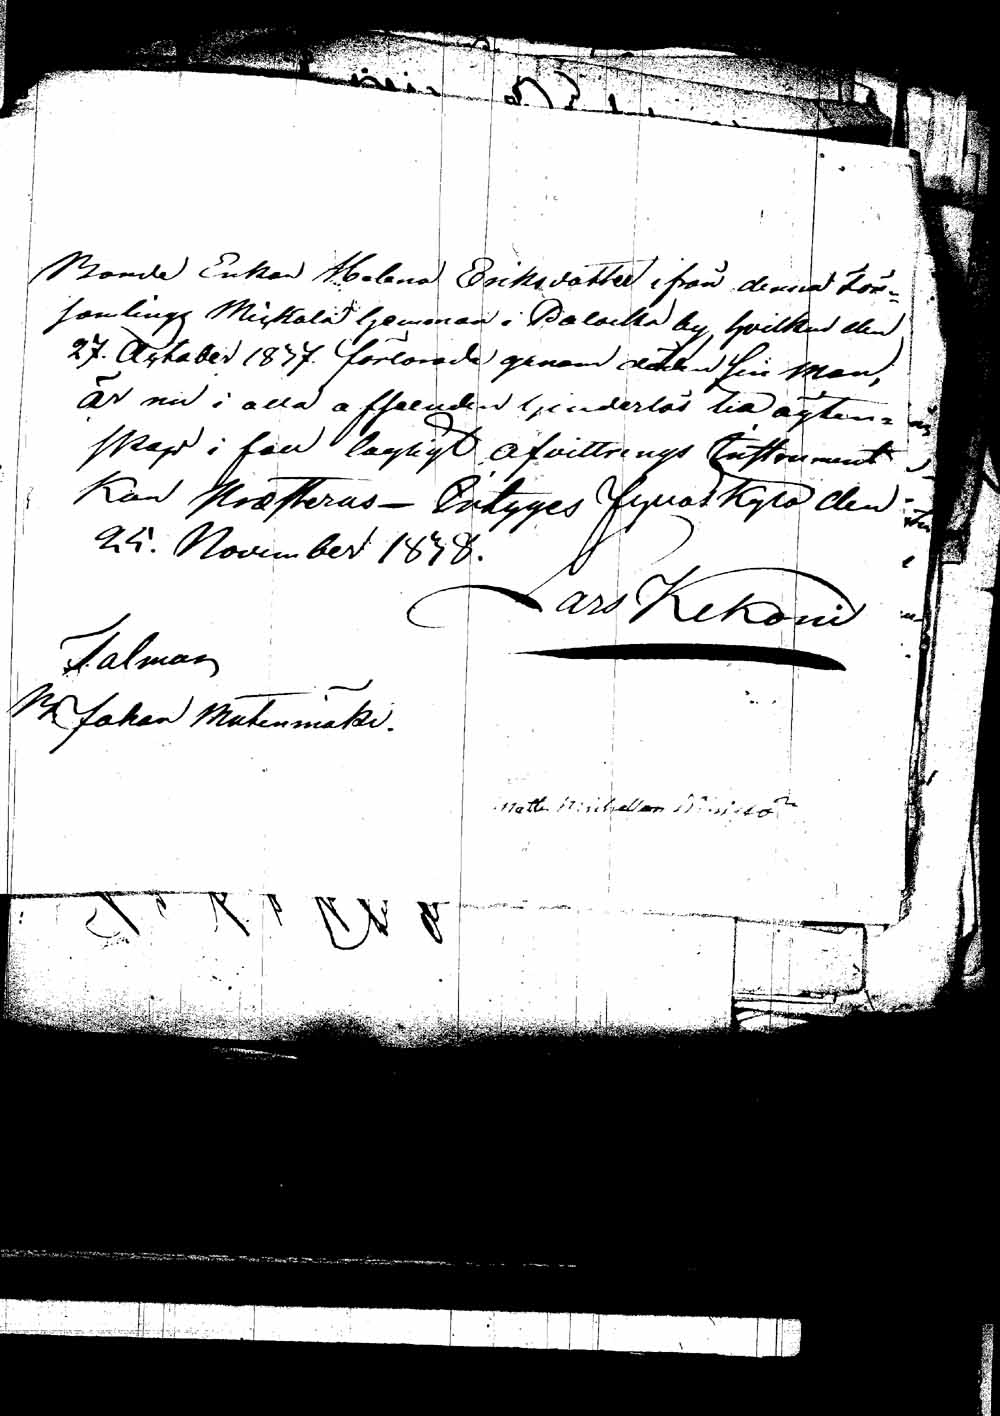 Bonde Enkan Helena Eriksdotter ifrån denna För=
samlings Mickala hemman i Palocka by hvilken den
27. October 1837. förlorade genom döden sin Man,
är nu i alla afseenden hinderlös till ägten=
skap i fall lagligt afvittrings Instrument
kan Præsteras — Betygas Jyväskylä den
25. November 1838.
Lars Kekoni
Talman
Johan Mutenmäki.
Matts Michelsson